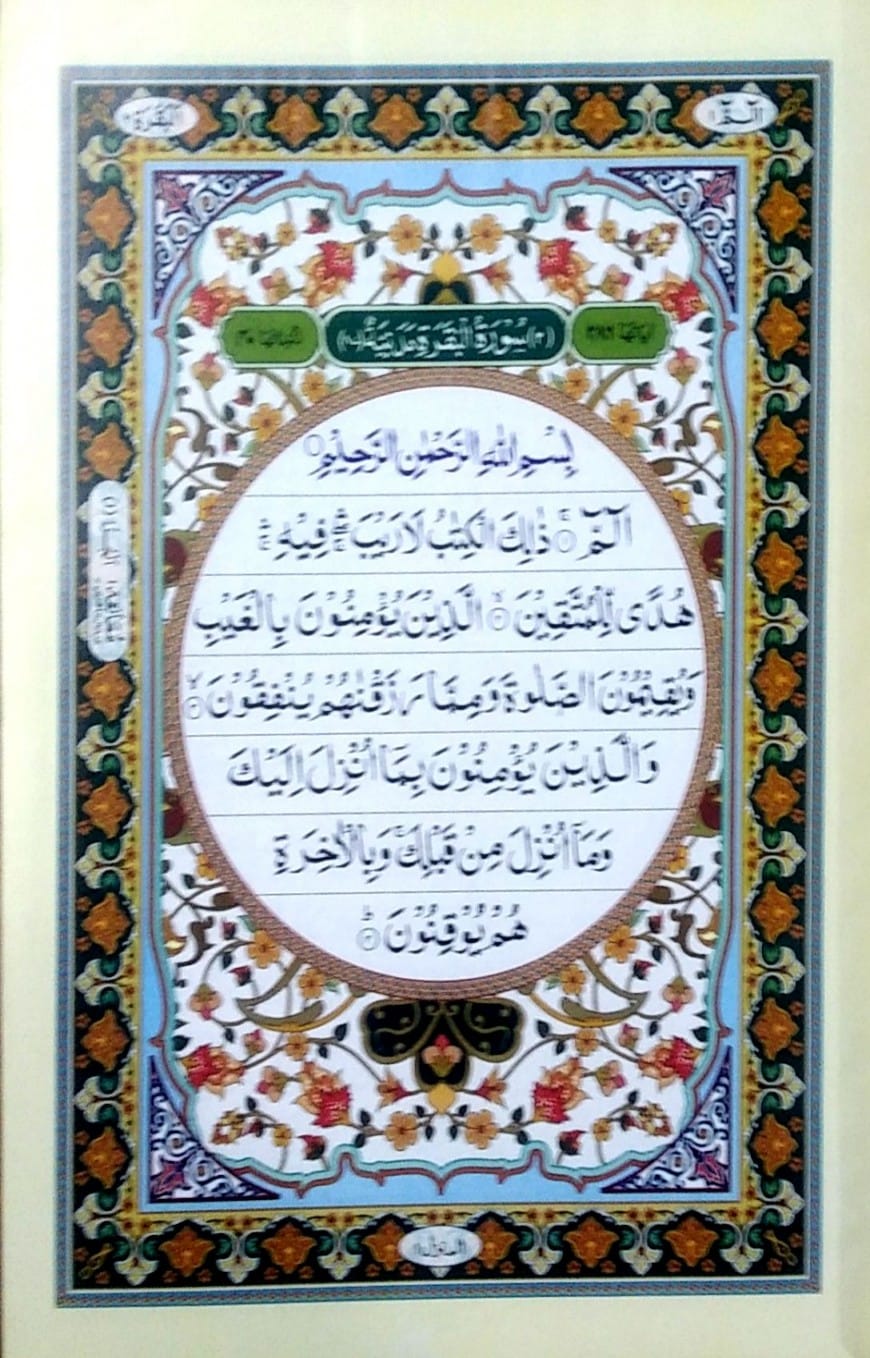 الٓمّٓ ۱
البقرة ۲
اٰیاتها ۲۸۶
(۲) سُوْرَةُ الْبَقَرَةِ مَدَنِيَّةٌ (۸۷)
رکوعاتها ۴۰
بِسْمِ اللّٰهِ الرَّحْمٰنِ الرَّحِيْمِ
الٓمّٓ ۚ ذٰلِكَ الْكِتٰبُ لَا رَيْبَ ۛ فِيْهِ ۛ
هُدًى لِّلْمُتَّقِيْنَ ۙ الَّذِيْنَ يُؤْمِنُوْنَ بِالْغَيْبِ
وَيُقِيْمُوْنَ الصَّلٰوةَ وَمِمَّا رَزَقْنٰهُمْ يُنْفِقُوْنَ ۙ
وَالَّذِيْنَ يُؤْمِنُوْنَ بِمَاۤ اُنْزِلَ اِلَيْكَ
وَمَاۤ اُنْزِلَ مِنْ قَبْلِكَ ۚ وَبِالْاٰخِرَةِ
هُمْ يُوْقِنُوْنَ ۭ
المنزل ۱